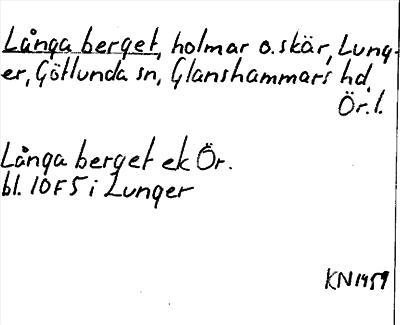 Långa berget, holmar o. skär, Lung-
er, Götlunda sn, Glanshammars hd,
Ör. l.
Långa berget ek Ör.
bl. 10F5 i Lunger
KN 1959